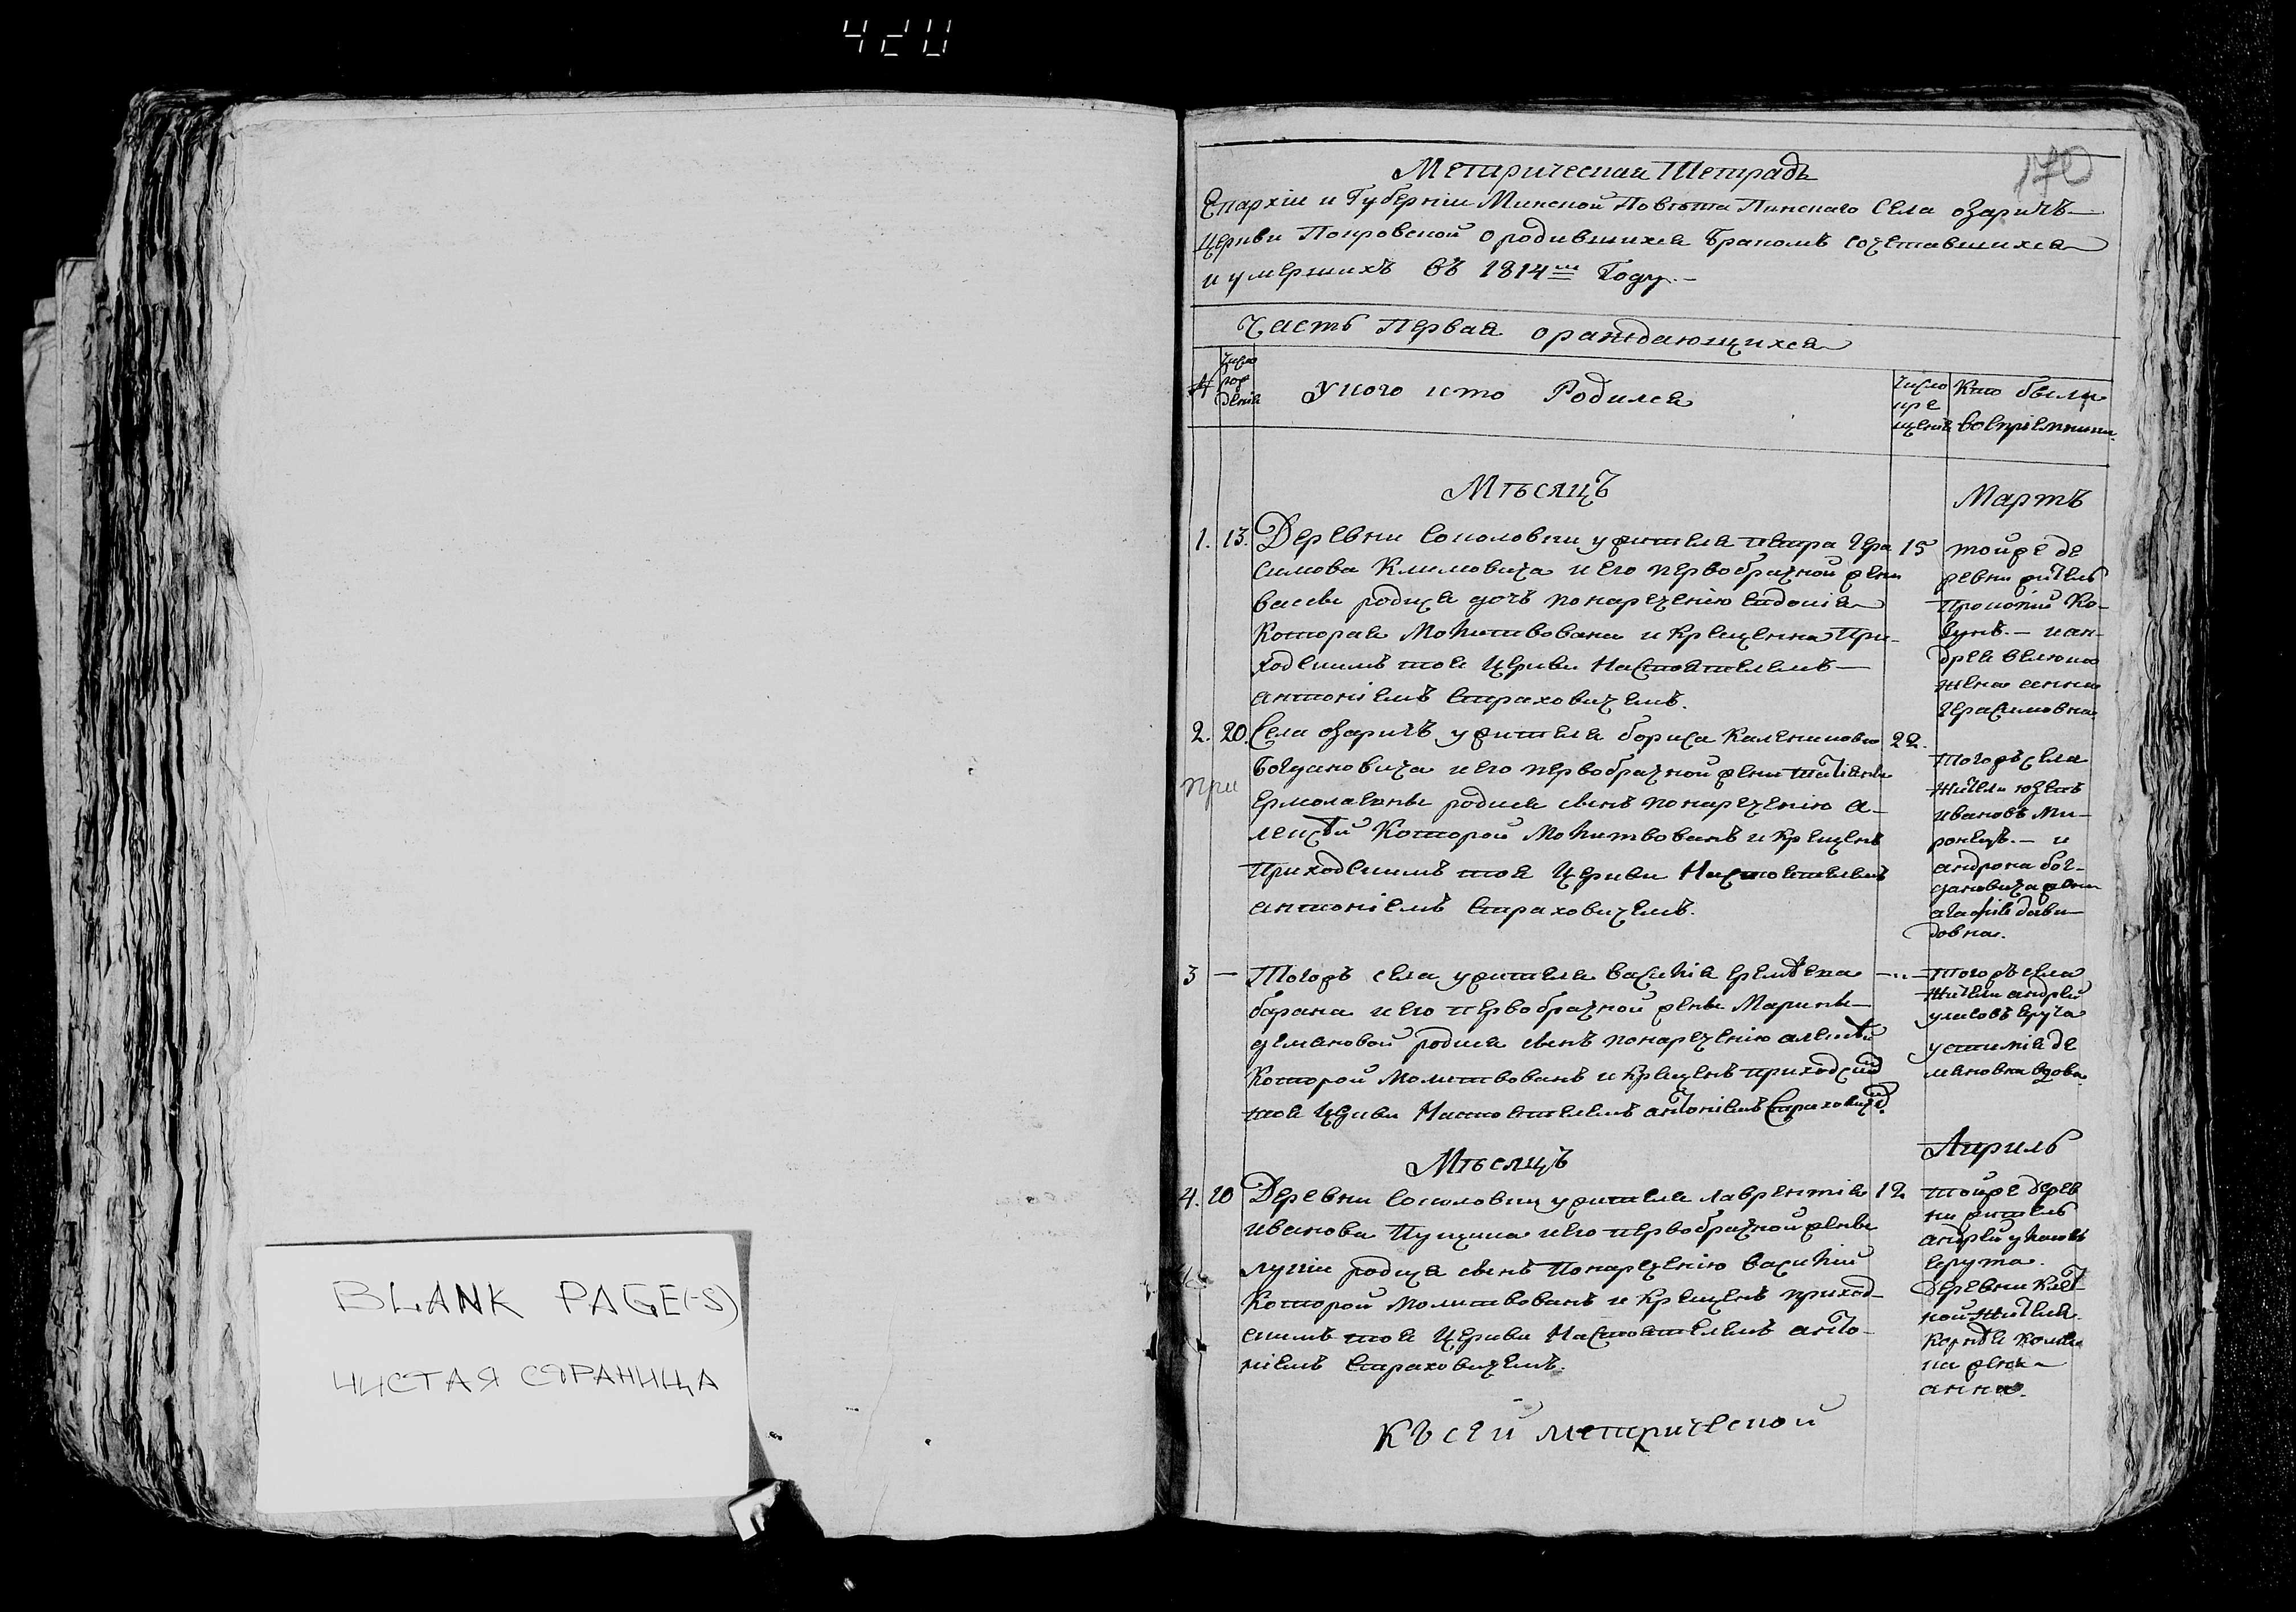 420
BLANK PAGE(-S)
ЧИСТАЯ СТРАНИЦА
170
Метрическая Тетрадь
Епархіи и Губерніи Минской Повѣта Пинскаго Села озаричъ
Церкви Покровской о родившихся бракомъ сочетавшихся
и умершихъ въ 1814м Году.
Часть Первая о раждающихся
Число рож денія
У кого кто Родился
Число кре щенія
Кто были воспріемники
Мѣсяцъ
Мартъ
1. 13. Деревни Соколовки у жителя петра Гера
симова Климовича и его первобрачной жени
родися дочь по нареченію евдокія
Которая Молитвована и Крещенна При-
ходскимъ тоя Церкви Настоятелемъ
антоніемъ Страховичемъ.
15
тойже де
ревни житель
Прокопій Ко-
вунъ. – и ан-
дрея
жена анна
Герасимовна
2. 20. Села озаричъ у жителя бориса Каленикова
Богдановича и его первобрачной жени татіяни
ермолаевны родися сынъ по нареченію а-
лексѣй Которой Молитвованъ и Крещенъ
Приходскимъ тоя Церкви Настоятелемъ
антоніемъ Страховичемъ.
при
22.
тогожъ села
жители юзефъ
ивановъ Ми-
ронецъ. – и
андрона бог-
дановича жена
агафія дави-
довна.
3 — Тогожъ села у жителя василія
барана и его первобрачной жены Марины
демяновой родися сынъ по нареченію алексѣй
Которой Молитвованъ и Крещенъ приходским
тоя Церкви Настоятелемъ антоніемъ Страховичем.
тогожъ села
жители андрей
устинія де
мяновна вдова
Мѣсяцъ
Априль
4. 10 Деревни Соколовки у жителя лаврентія
иванова Пущика и его первобрачной жены
лукіи родися сынъ По нареченію василій
Которой Молитвованъ и Крещенъ приход-
скимъ тоя Церкви Настоятелемъ анто-
ніемъ Страховичемъ.
12
тойже дерев
ни житель
андрей
Деревни
жителя
жена
анна.
Къ сей метрической